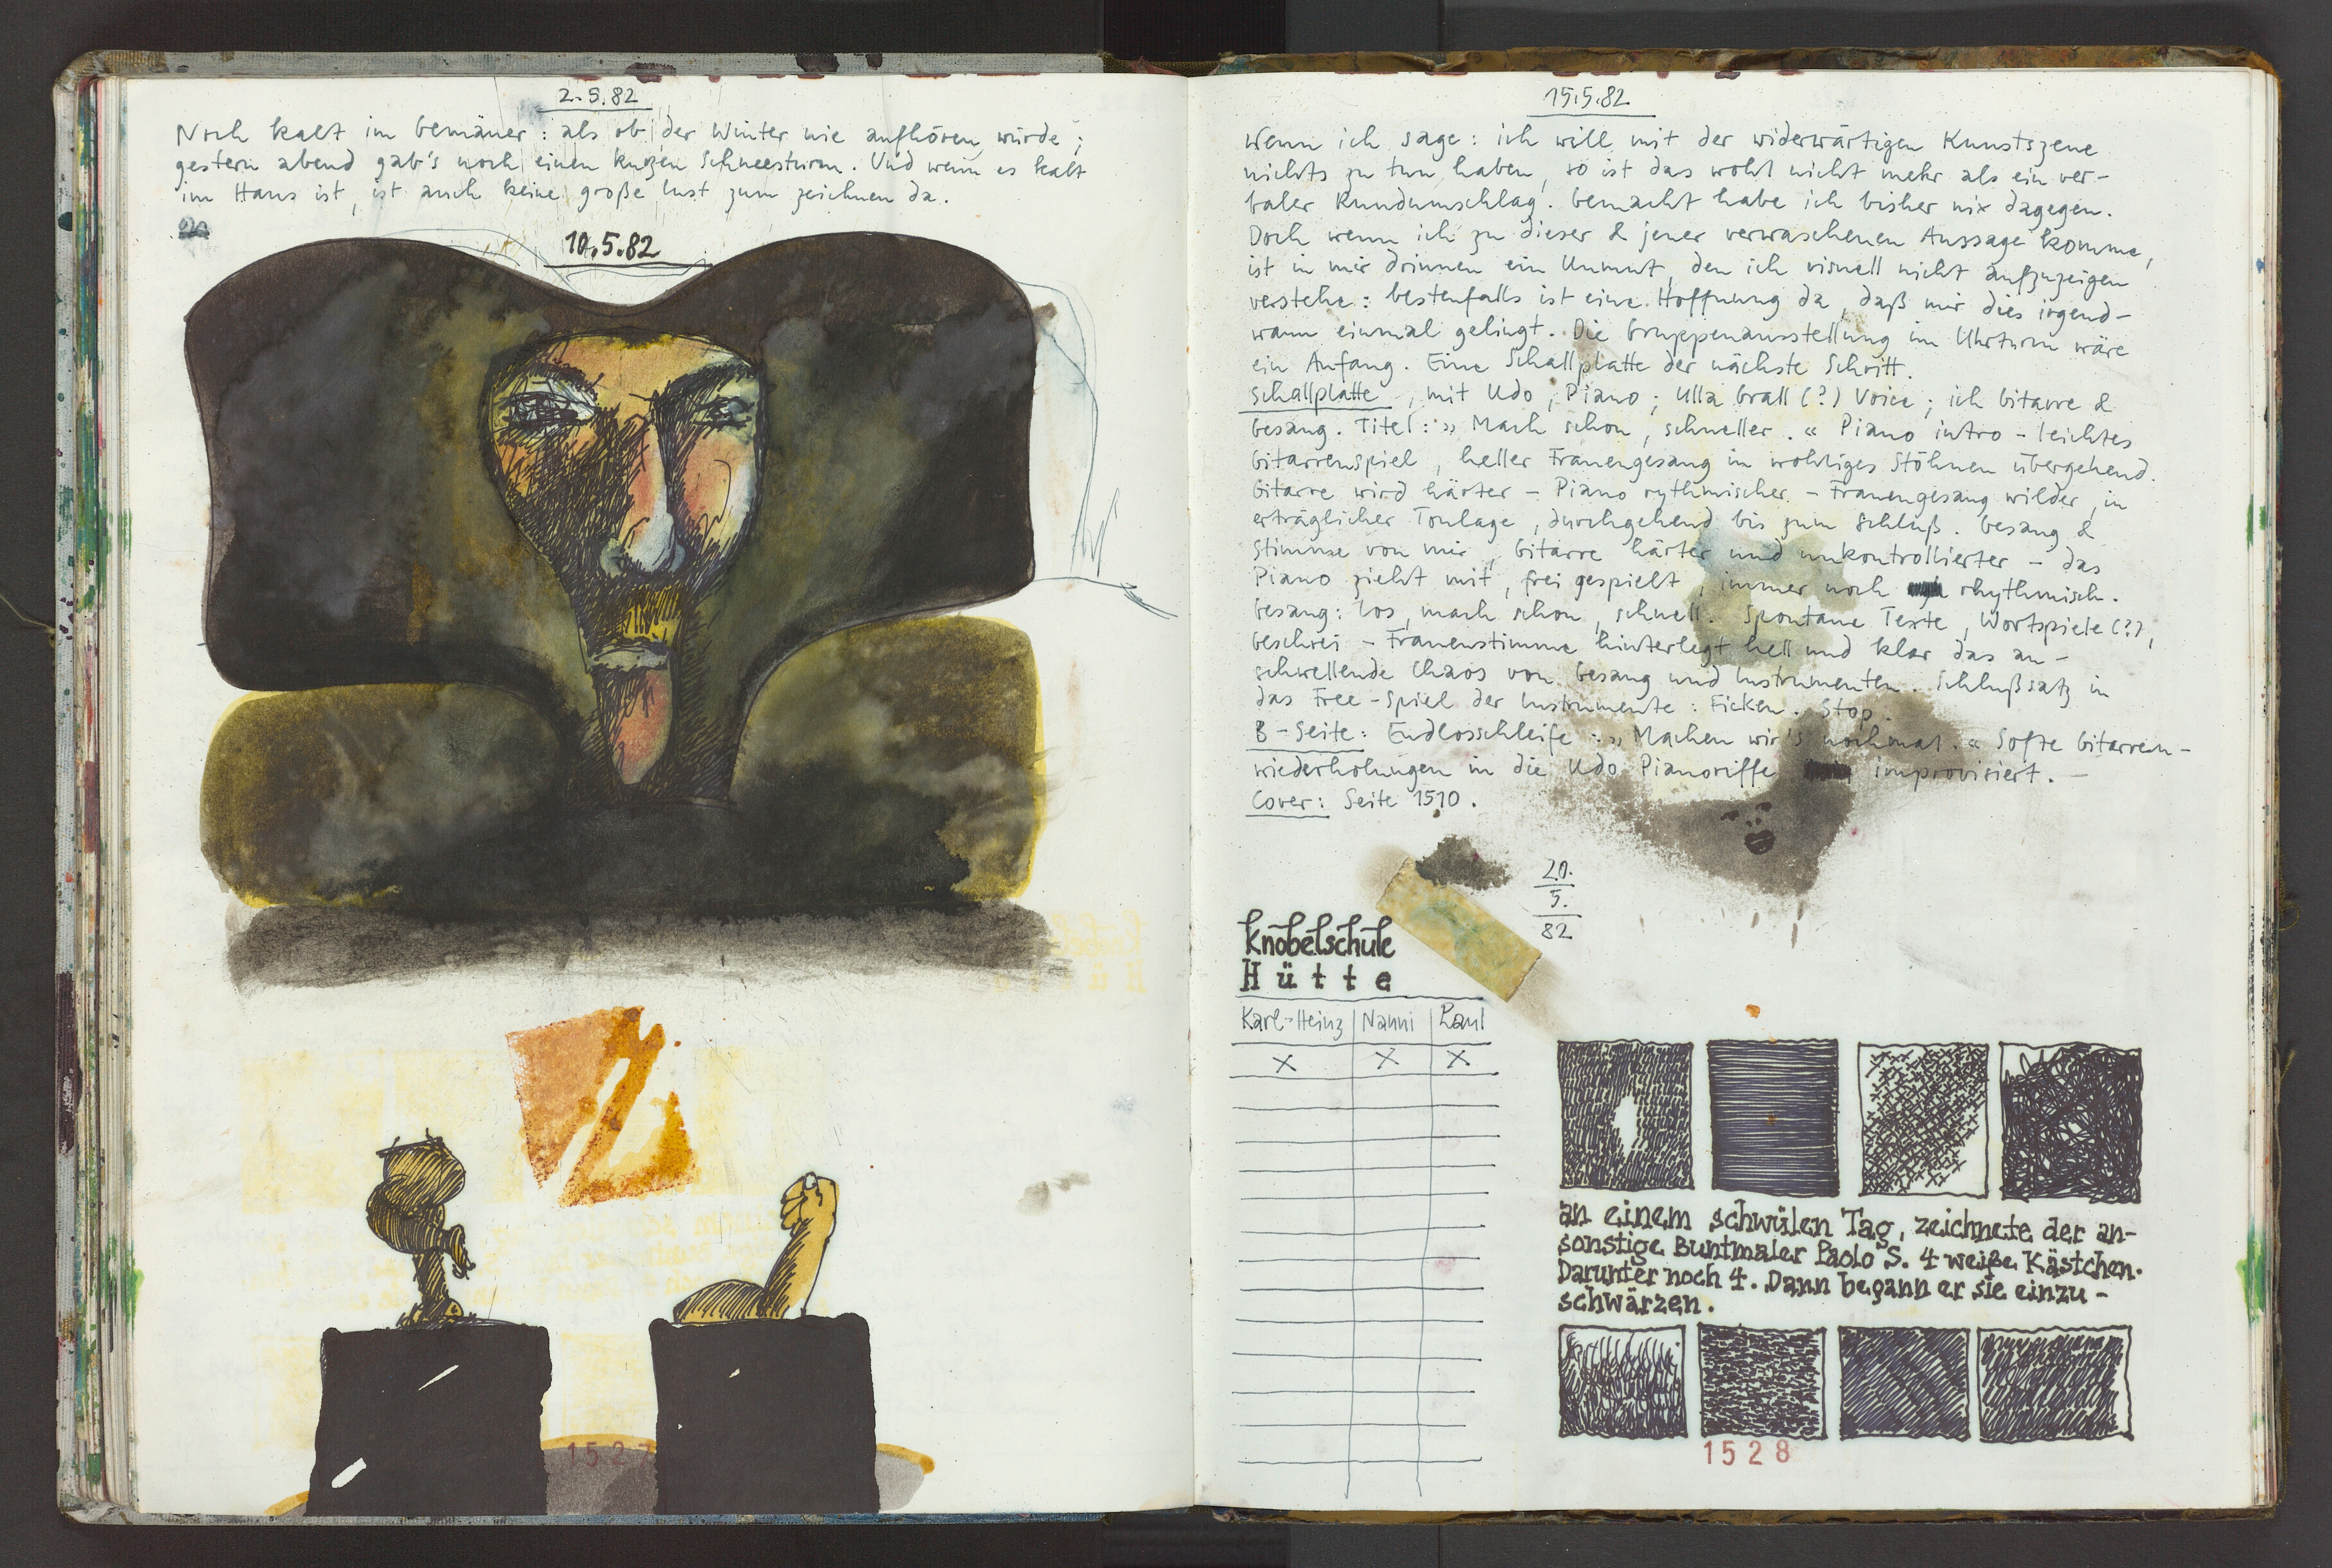 2.5.82
Noch kalt im Gemäuer: als ob der Winter nie aufhören würde;
gestern abend gab's noch einen kurzen Schneesturm. Und wenn es kalt
im Haus ist, ist auch keine große Lust zum zeichnen da.
10.5.82
1527
15.5.82
Wenn ich sage: ich will mit der widerwärtigen Kunstszene
nichts zu tun haben, so ist das wohl nicht mehr als ein ver-
baler Rundumschlag. Gemacht habe ich bisher nix dagegen.
Doch wenn ich zu dieser & jener verwaschenen Aussage komme,
ist in mir drinnen ein Unmut, den ich visuell nicht aufzuzeigen
verstehe: bestenfalls ist eine Hoffnung da, daß mir dies irgend-
wann einmal gelingt. Die Gruppenausstellung im Uhrturm wäre
ein Anfang. Eine Schallplatte der nächste Schritt.
Schallplatte, mit Udo, Piano; Ulla Grall (?) Voice; ich Gitarre &
Gesang. Titel: » Mach schon, schneller. « Piano intro - leichtes
Gitarrenspiel, heller Frauengesang in wohliges Stöhnen übergehend.
Gitarre wird härter - Piano rythmischer - Frauengesang wilder, in
erträglicher Tonlage, durchgehend bis zum Schluß. Gesang &
Stimme von mir, Gitarre härter und unkontrollierter - das
Piano zieht mit, frei gespielt, immer noch rhythmisch.
Gesang: los, mach schon, schnell. Spontane Texte, Wortspiele (?),
Geschrei - Frauenstimme hinterlegt hell und klar das an-
schwellende Chaos von Gesang und Instrumenten. Schlußsatz in
das Free-Spiel der Instrumente: Ficken. Stop.
B-Seite: Endlosschleife: » Machen wir's nochmal. « Softe Gitarren-
wiederholungen in die Udo Pianoriffe improvisiert. -
Cover: Seite 1510.
20.
5.
82
Knobelschule
Hütte
Karl-Heinz | Nanni | Paul
x x x
an einem schwülen Tag, zeichnete der an-
sonstige Buntmaler Paolo S. 4 weiße Kästchen.
Darunter noch 4. Dann begann er sie einzu-
schwärzen.
1528